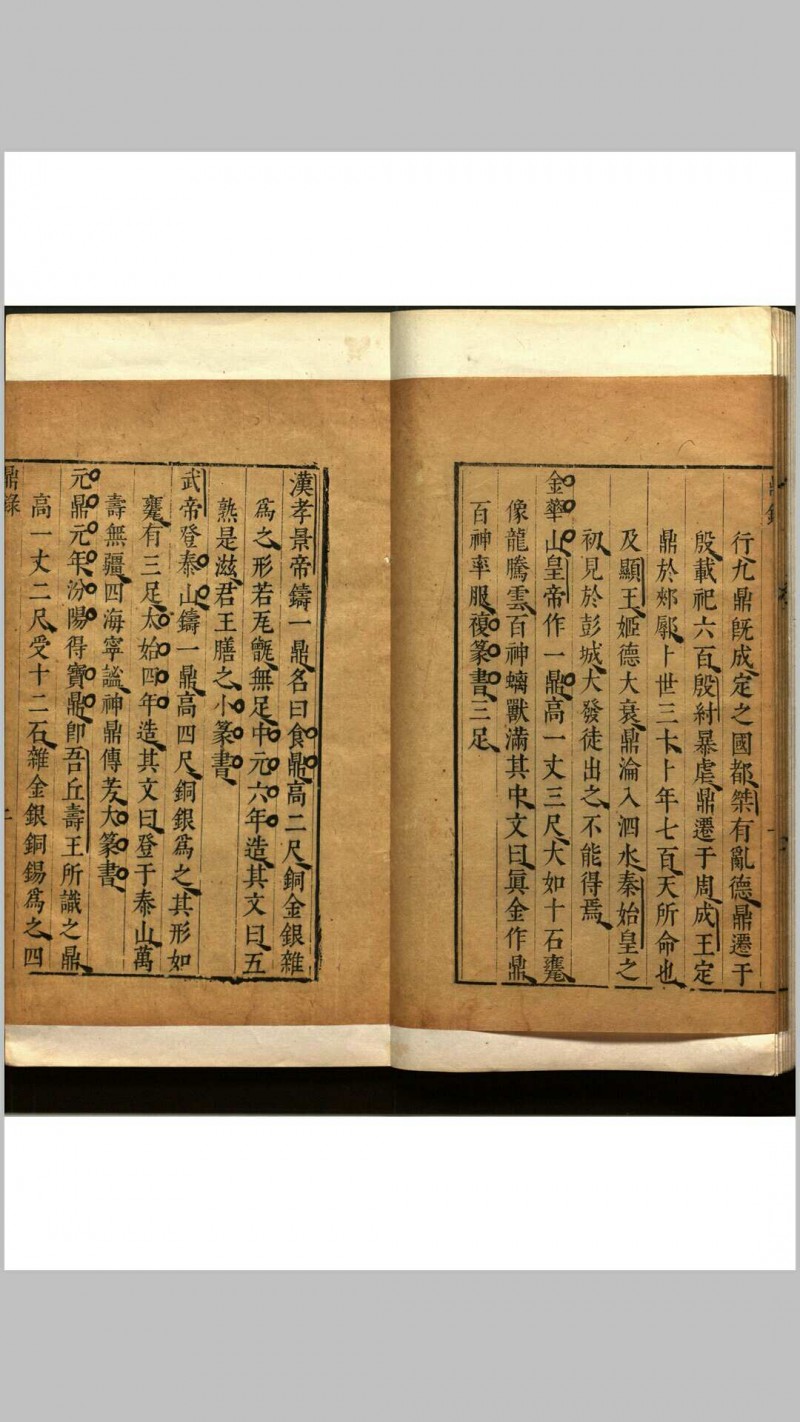 行九鼎既成定之國都桀有亂德鼎遷于
殷載祀六百殷紂暴虐鼎遷于周成王定
鼎於郟鄏卜世三十卜年七百天所命也
及顯王姬德大衰鼎淪入泗水秦始皇之
初見於彭城大發徒出之不能得焉
金華山皇帝作一鼎高一丈三尺大如十石甕
像龍騰雲百神螭獸滿其中文曰眞金作鼎
百神率服複篆書三足
漢孝景帝鑄一鼎名曰食鼎高二尺銅金銀雜
爲之形若瓦甑無足中元六年造其文曰五
熟是滋君王膳之小篆書
武帝登泰山鑄一鼎高四尺銅銀爲之其形如
甕有三足太始四年造其文曰登于泰山萬
壽無疆四海寧謐神鼎傳芳大篆書
元鼎元年汾陽得寶鼎卽吾丘壽王所識之鼎
高一丈二尺受十二石雜金銀銅錫爲之四
鼎錄